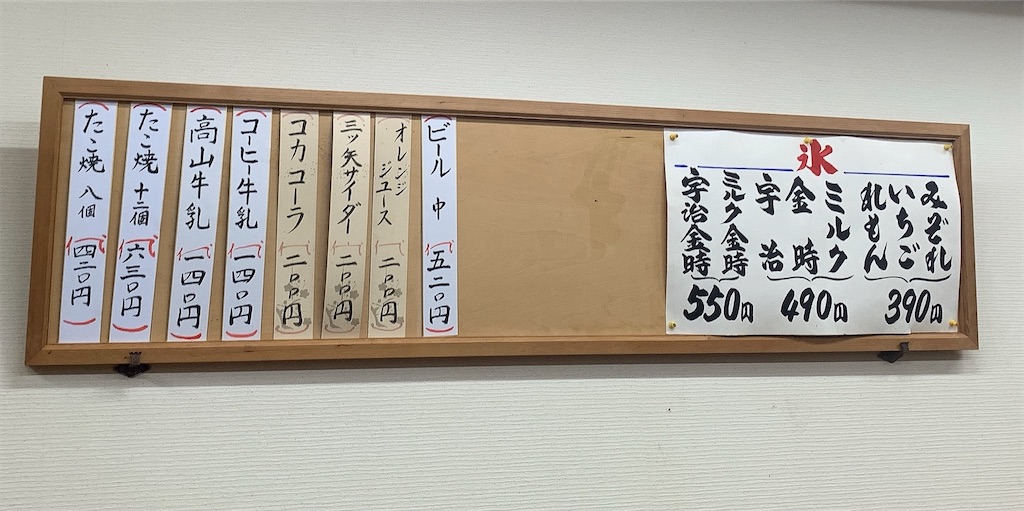 氷
みぞれ
いちご
れもん
390円
ミルク
金時
宇治
490円
ミルク金時
宇治金時
550円
ビール 中 代 五二〇円
オレンジ
ジュース
代 二〇〇円
三ツ矢サイダー 代 二〇〇円
コカコーラ 代 二〇〇円
コーヒー牛乳 代 一四〇円
高山牛乳 代 一四〇円
たこ焼 十二個 代 六三〇円
たこ焼 八個 代 四二〇円